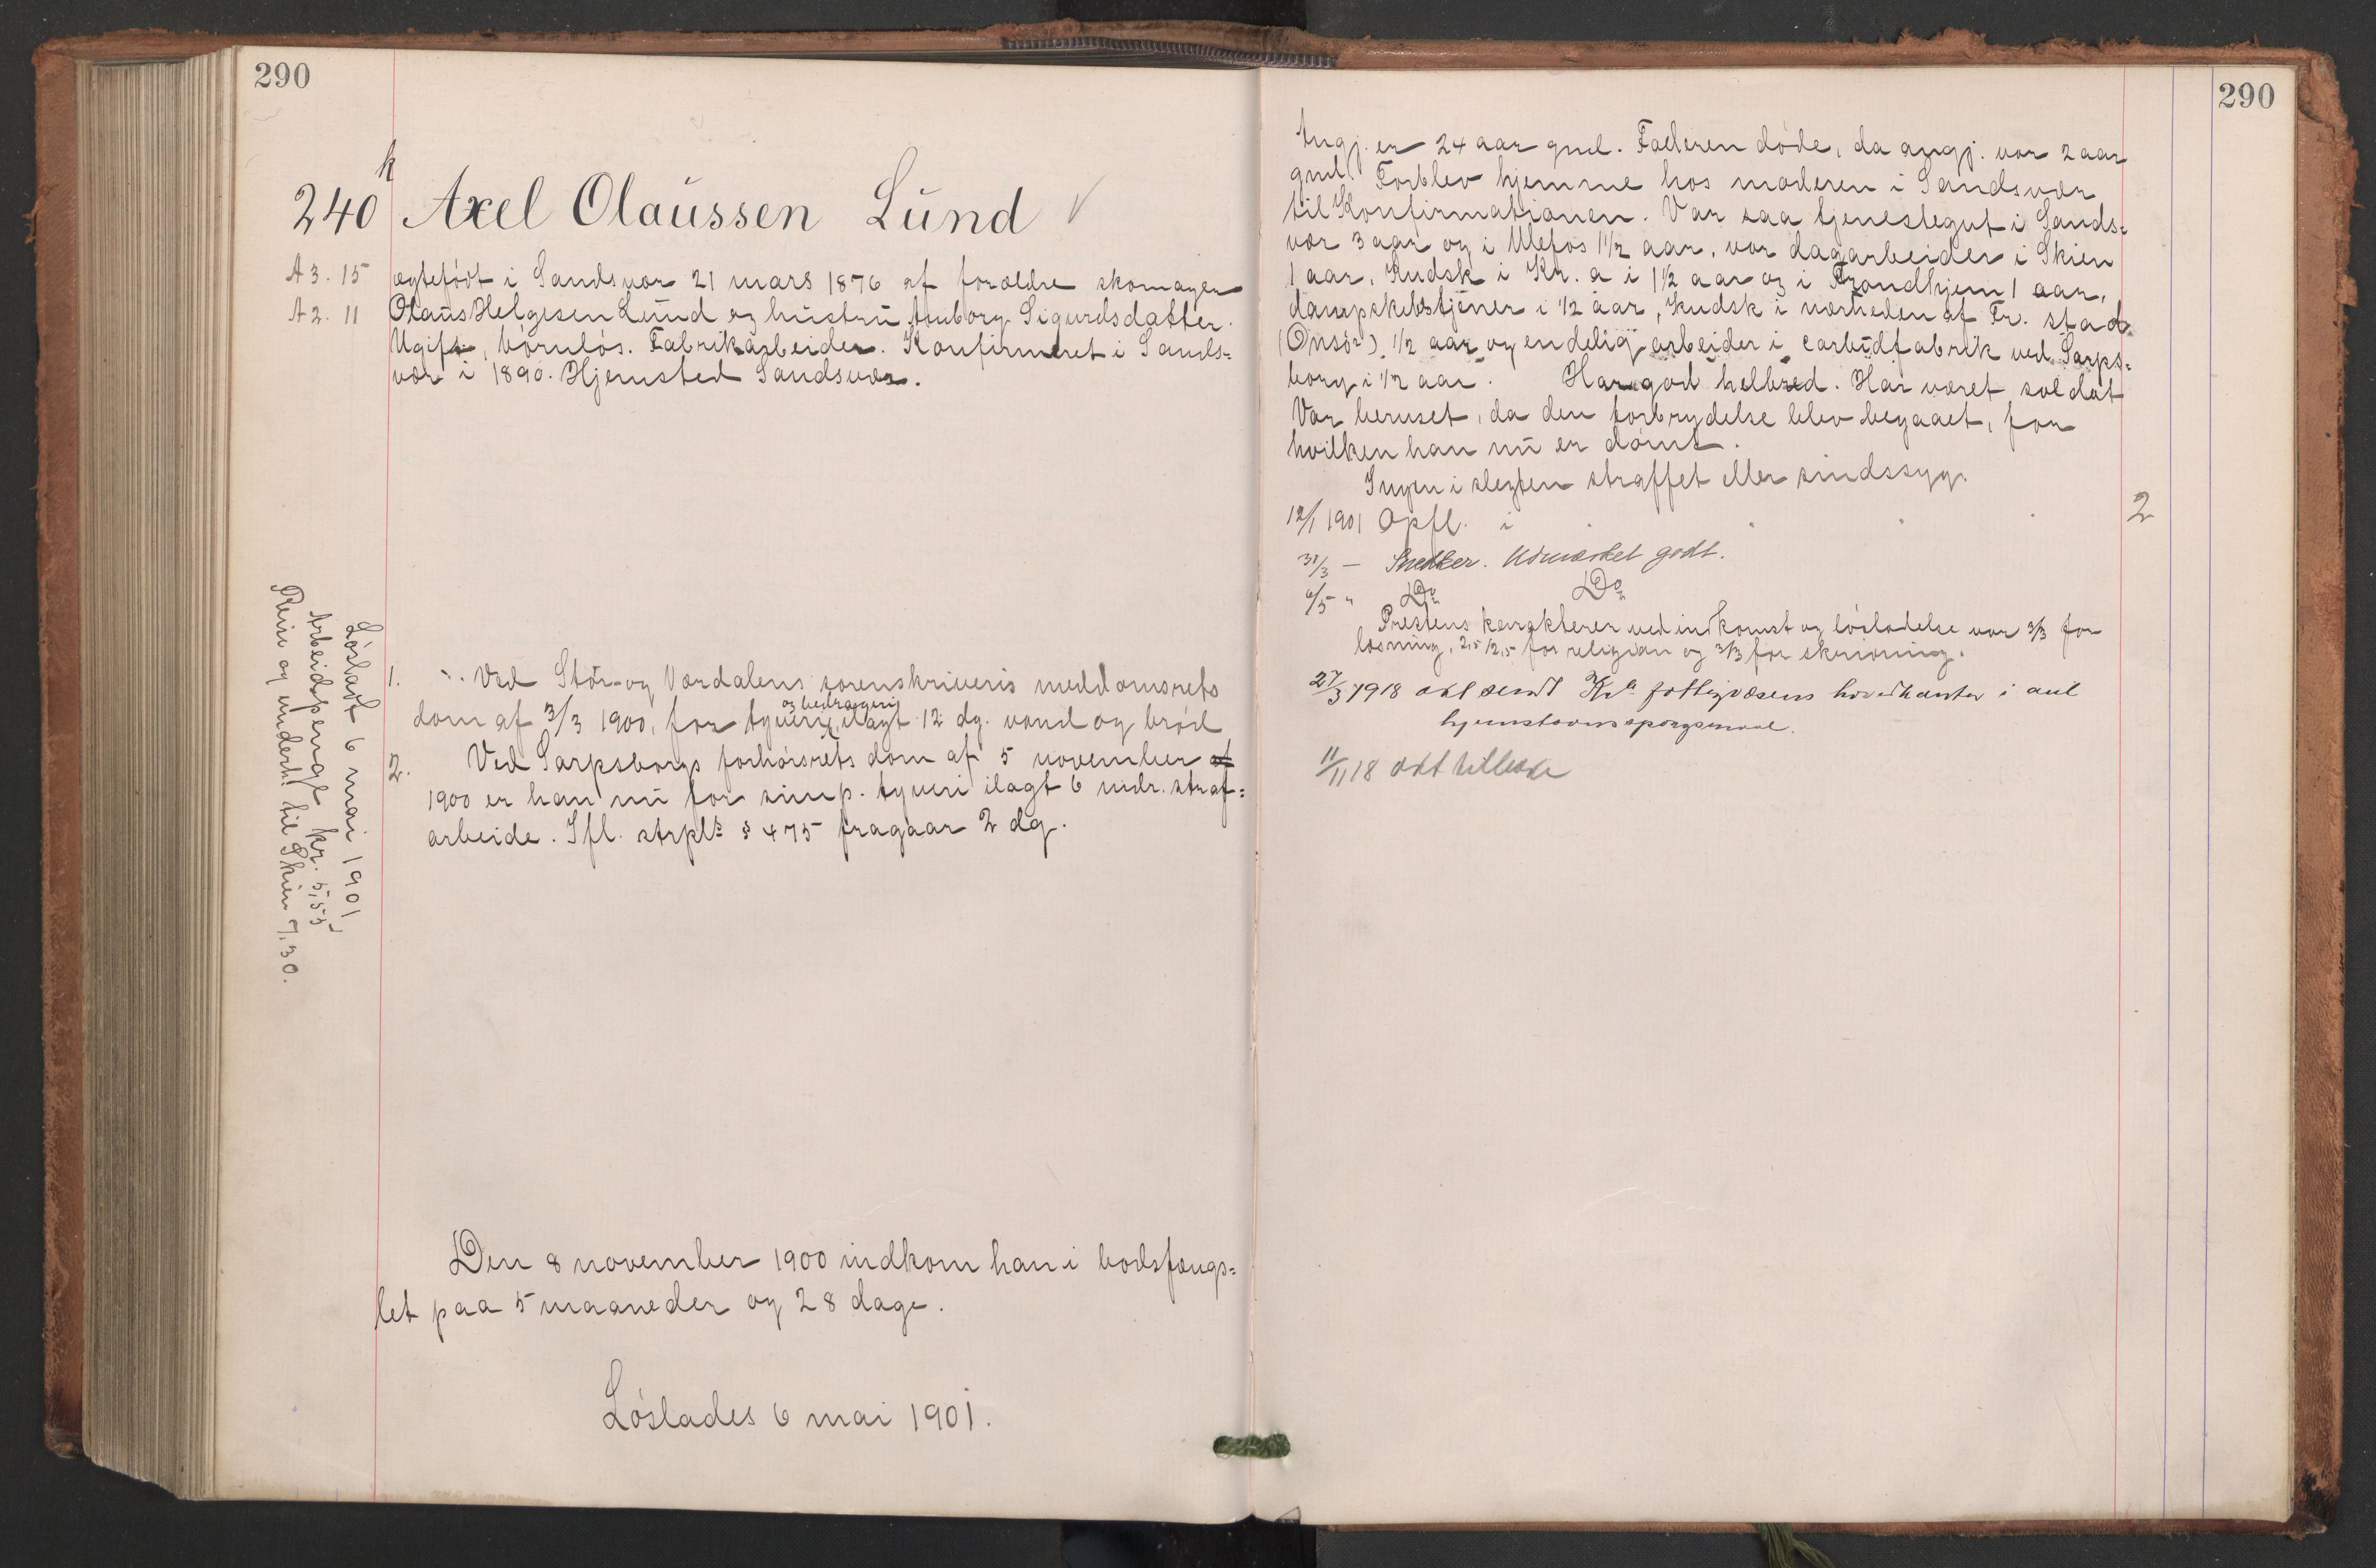 290
k
240 Axel Olaussen Lund
A 3. 15 ægtefødt i Sandsvær 21 mars 1876 af forældre skomager
A 2. 11 Olaus Helgesen Lund og hustru Anborg Sigurdsdatter.
Ugift, børnløs. Fabrikarbeider. Konfirmeret i Sands=
vær i 1890. Hjemsted Sandsvær.
Løsladt 6 mai 1901
Arbeidspenge kr. 5,55
Reise og underh. til Skien 7,30.
1. Ved Stör- og Værdalens sorenskriveris meddomsrets
og bedrageri
dom af 3/3 1900, for tyveri, ilagt 12 dg. vand og brød
2. Ved Sarpsborgs forhørsrets dom af 5 november af
1900 er han nu for simp. tyveri ilagt 6 mdr. straf=
arbeide. Ifl. strpls § 475 fragaar 2 dg.
Den 8 november 1900 indkom han i bodsfængs=
let paa 5 maaneder og 28 dage.
Løslades 6 mai 1901.
290
Angj. er 24 aar gml. Faderen døde, da angj. var 2 aar
gml. Forblev hjemme hos moderen i Sandsvær
til Konfirmationen. Var saa tjenestegut i Sands=
vær 3 aar og i Ulefos 1 1/2 aar, var dagarbeider i Skien
1 aar, Kudsk i Kr. a i 1 1/2 aar og i Trondhjem 1 aar,
dampskibstjener i 1/2 aar, Kudsk i nærheden af Fr. stad
(Onsø) 1/2 aar og endelig arbeider i carbidfabrik ved Sarps=
borg i 1/2 aar. Har god helbred. Har været soldat
Var beruset, da den forbrydelse blev begaaet, for
hvilken han nu er dømt.
Ingen i slegten straffet eller sindssyg.
12/1 1901 Opfl. i 2
31/3 — Snedker. Udmærket godt.
6/5 " Do Do
Prestens karakterer ved indkomst og løsladelse var 3/3 for
læsning, 2,5/2,5 for religion og 3/3 for skrivning.
27/3 1918 akt sendt Kra fattigvæsens hovedkontor i anl
hjemstavnsspørgsmaal.
11/11 18 akt tilbake